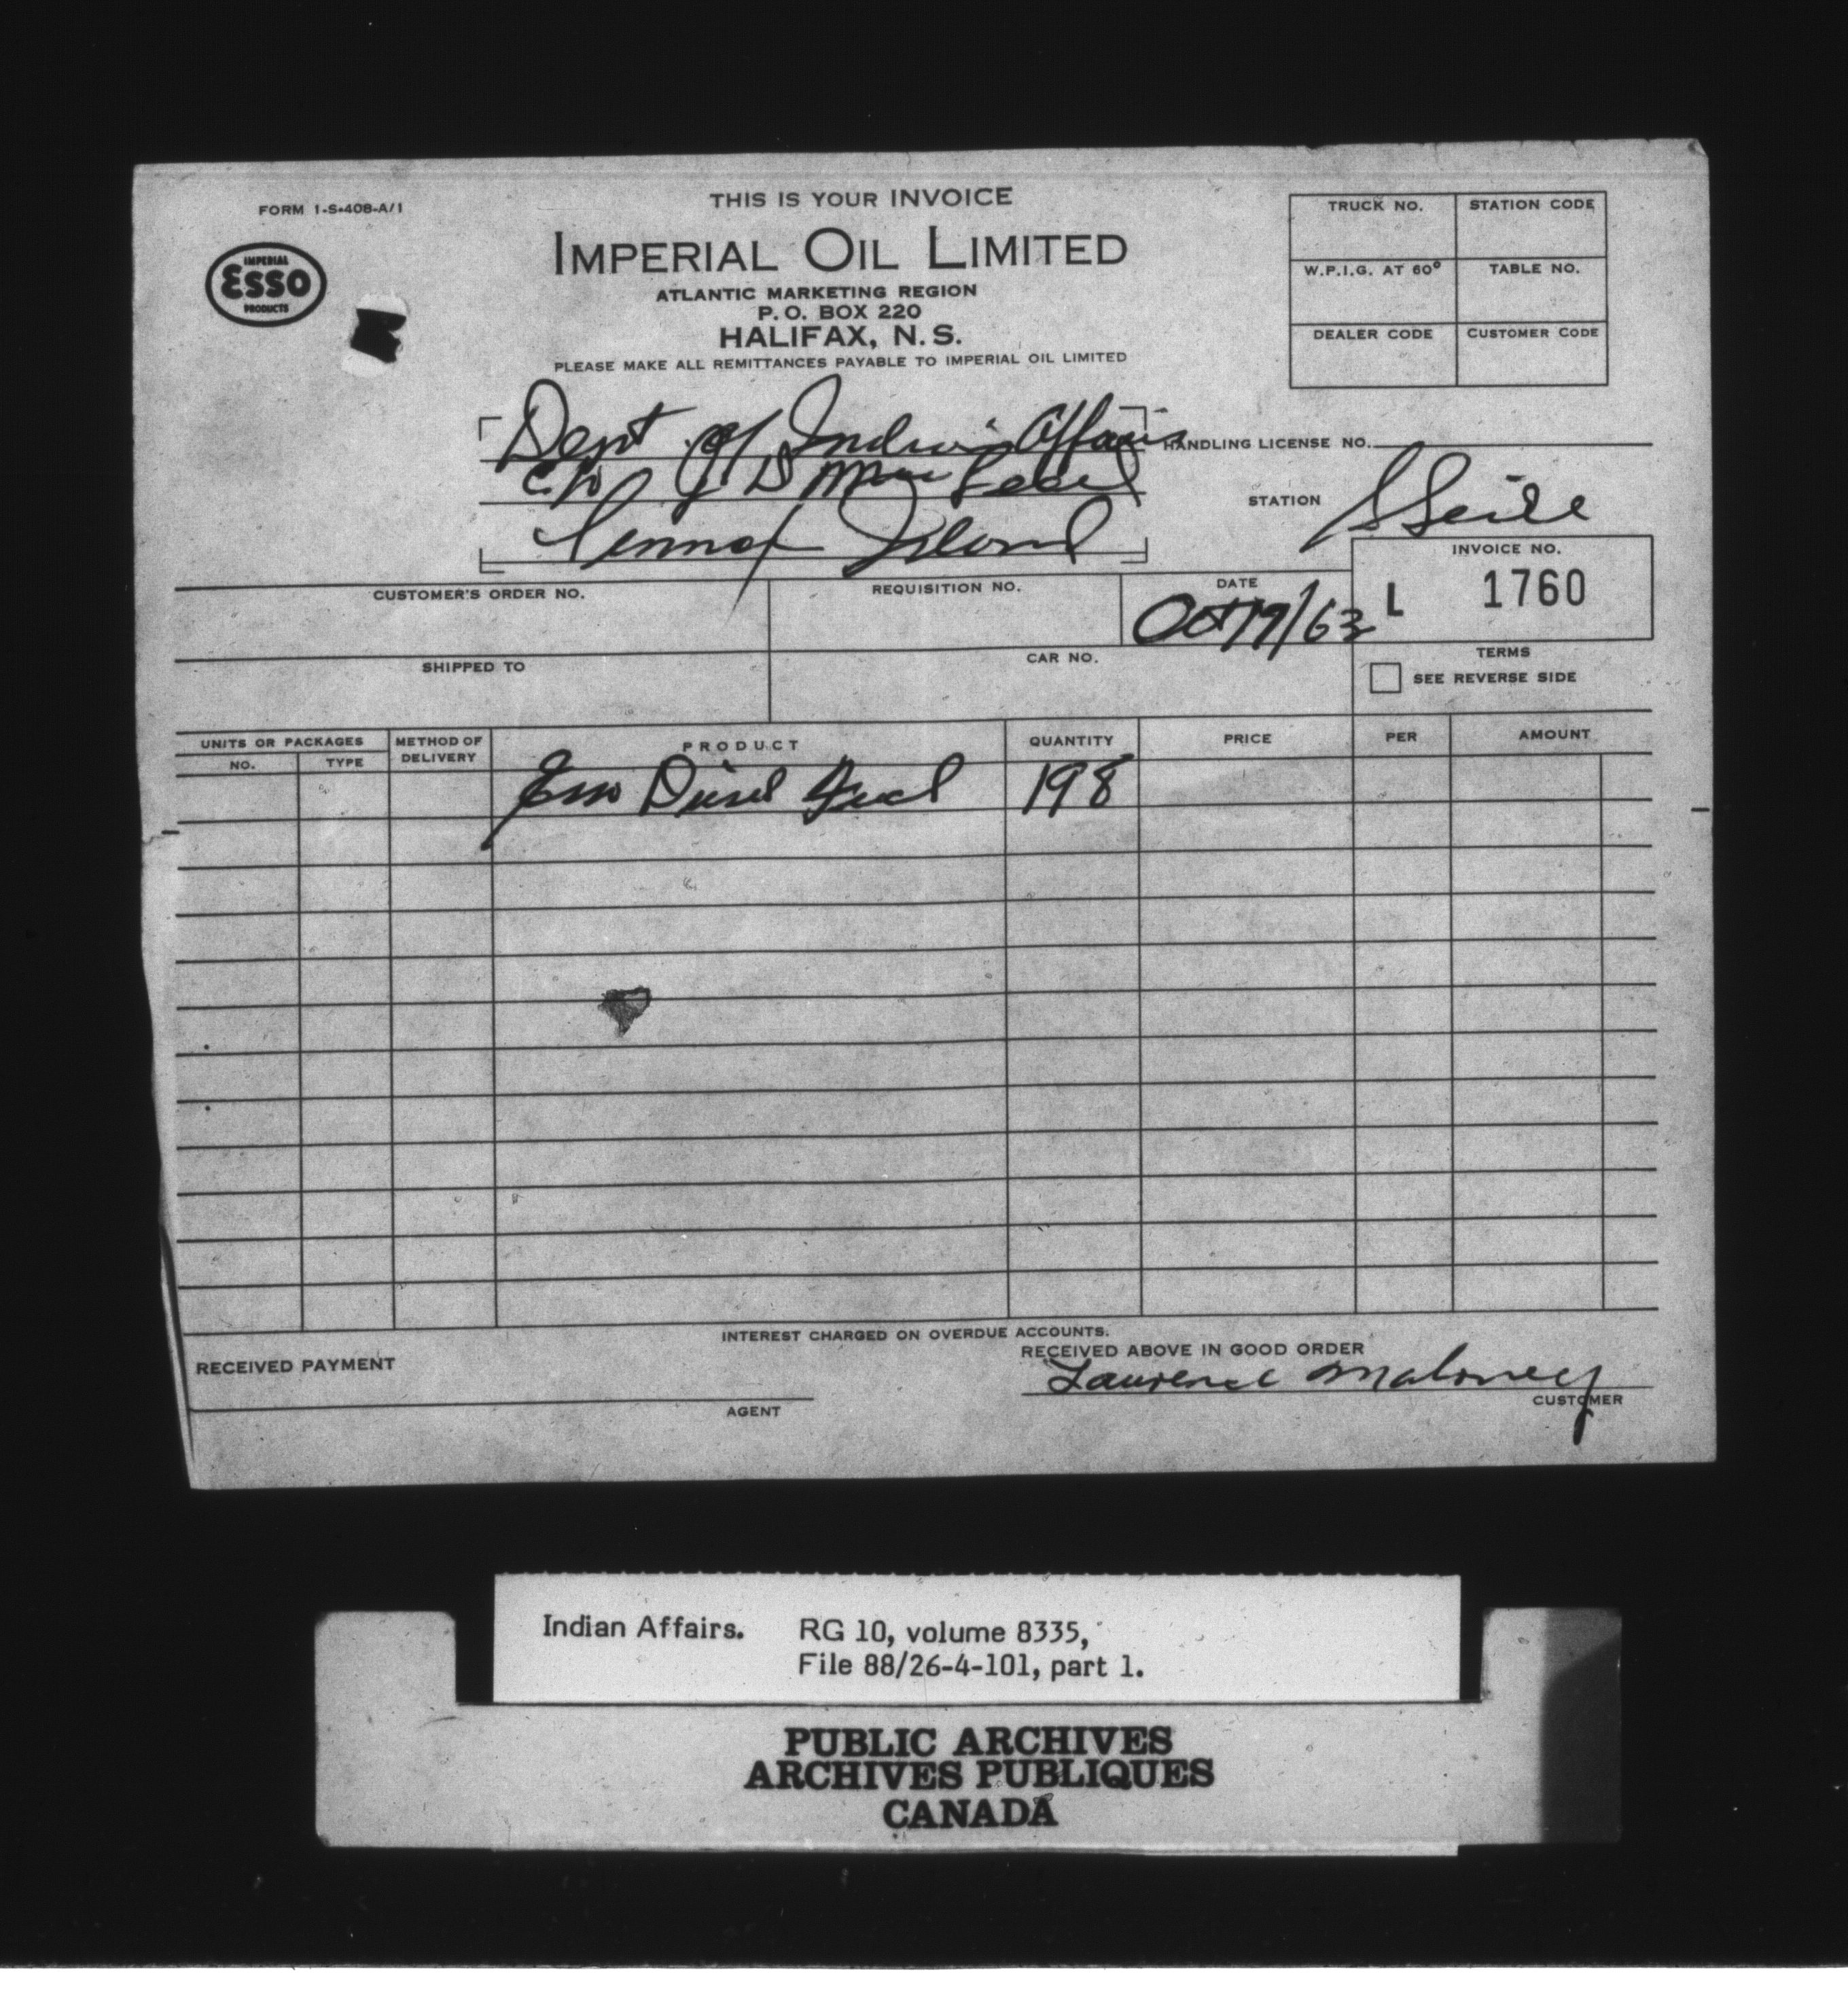 FORM 1-S-408-A/1
THIS IS YOUR INVOICE
IMPERIAL
ESSO
PRODUCTS
IMPERIAL OIL LIMITED
ATLANTIC MARKETING REGION
P.O. BOX 220
HALIFAX, N.S.
PLEASE MAKE ALL REMITTANCES PAYABLE TO IMPERIAL OIL LIMITED
TRUCK NO. STATION CODE
W.P.I.G. AT 60° TABLE NO.
DEALER CODE CUSTOMER CODE
Dept of Indian Affairs
c/o J D
Lennox Island
HANDLING LICENSE NO.
STATION
INVOICE NO.
L 1760
CUSTOMER'S ORDER NO. REQUISITION NO. DATE
Oct 19/63
SHIPPED TO CAR NO.
TERMS
SEE REVERSE SIDE
UNITS OR PACKAGES METHOD OF DELIVERY PRODUCT QUANTITY PRICE PER AMOUNT
NO. TYPE
Esso Diesel Fuel 198
INTEREST CHARGED ON OVERDUE ACCOUNTS.
RECEIVED PAYMENT
AGENT
RECEIVED ABOVE IN GOOD ORDER
Laurence Maloney
CUSTOMER
Indian Affairs. RG 10, volume 8335,
File 88/26-4-101, part 1.
PUBLIC ARCHIVES
ARCHIVES PUBLIQUES
CANADA